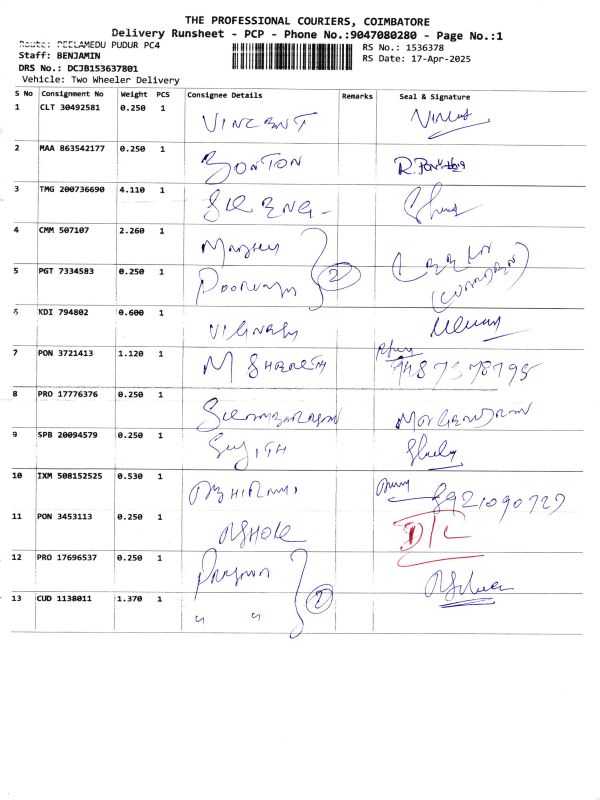 THE PROFESSIONAL COURIERS, COIMBATORE
Delivery Runsheet - PCP - Phone No.:9047080280 - Page No.:1
Route: PEELAMEDU PUDUR PC4
RS No.: 1536378
Staff: BENJAMIN
RS Date: 17-Apr-2025
DRS No.: DCJB153637801
Vehicle: Two Wheeler Delivery
S No Consignment No Weight PCS Consignee Details Remarks Seal & Signature
1 CLT 30492581 0.250 1 VINCENT
2 MAA 863542177 0.250 1 BONTON
3 TMG 200736690 4.110 1 ENG-
4 CMM 507107 2.260 1
5 PGT 7334583 0.250 1 2
6 KDI 794802 0.600 1
7 PON 3721413 1.120 1 M
8 PRO 17776376 0.250 1
9 SPB 20094579 0.250 1 Sujith
10 IXM 508152525 0.530 1 ABHIRAMI
11 PON 3453113 0.250 1 ASHOK D/L
12 PRO 17696537 0.250 1
13 CUD 1138011 1.370 1 " " 2